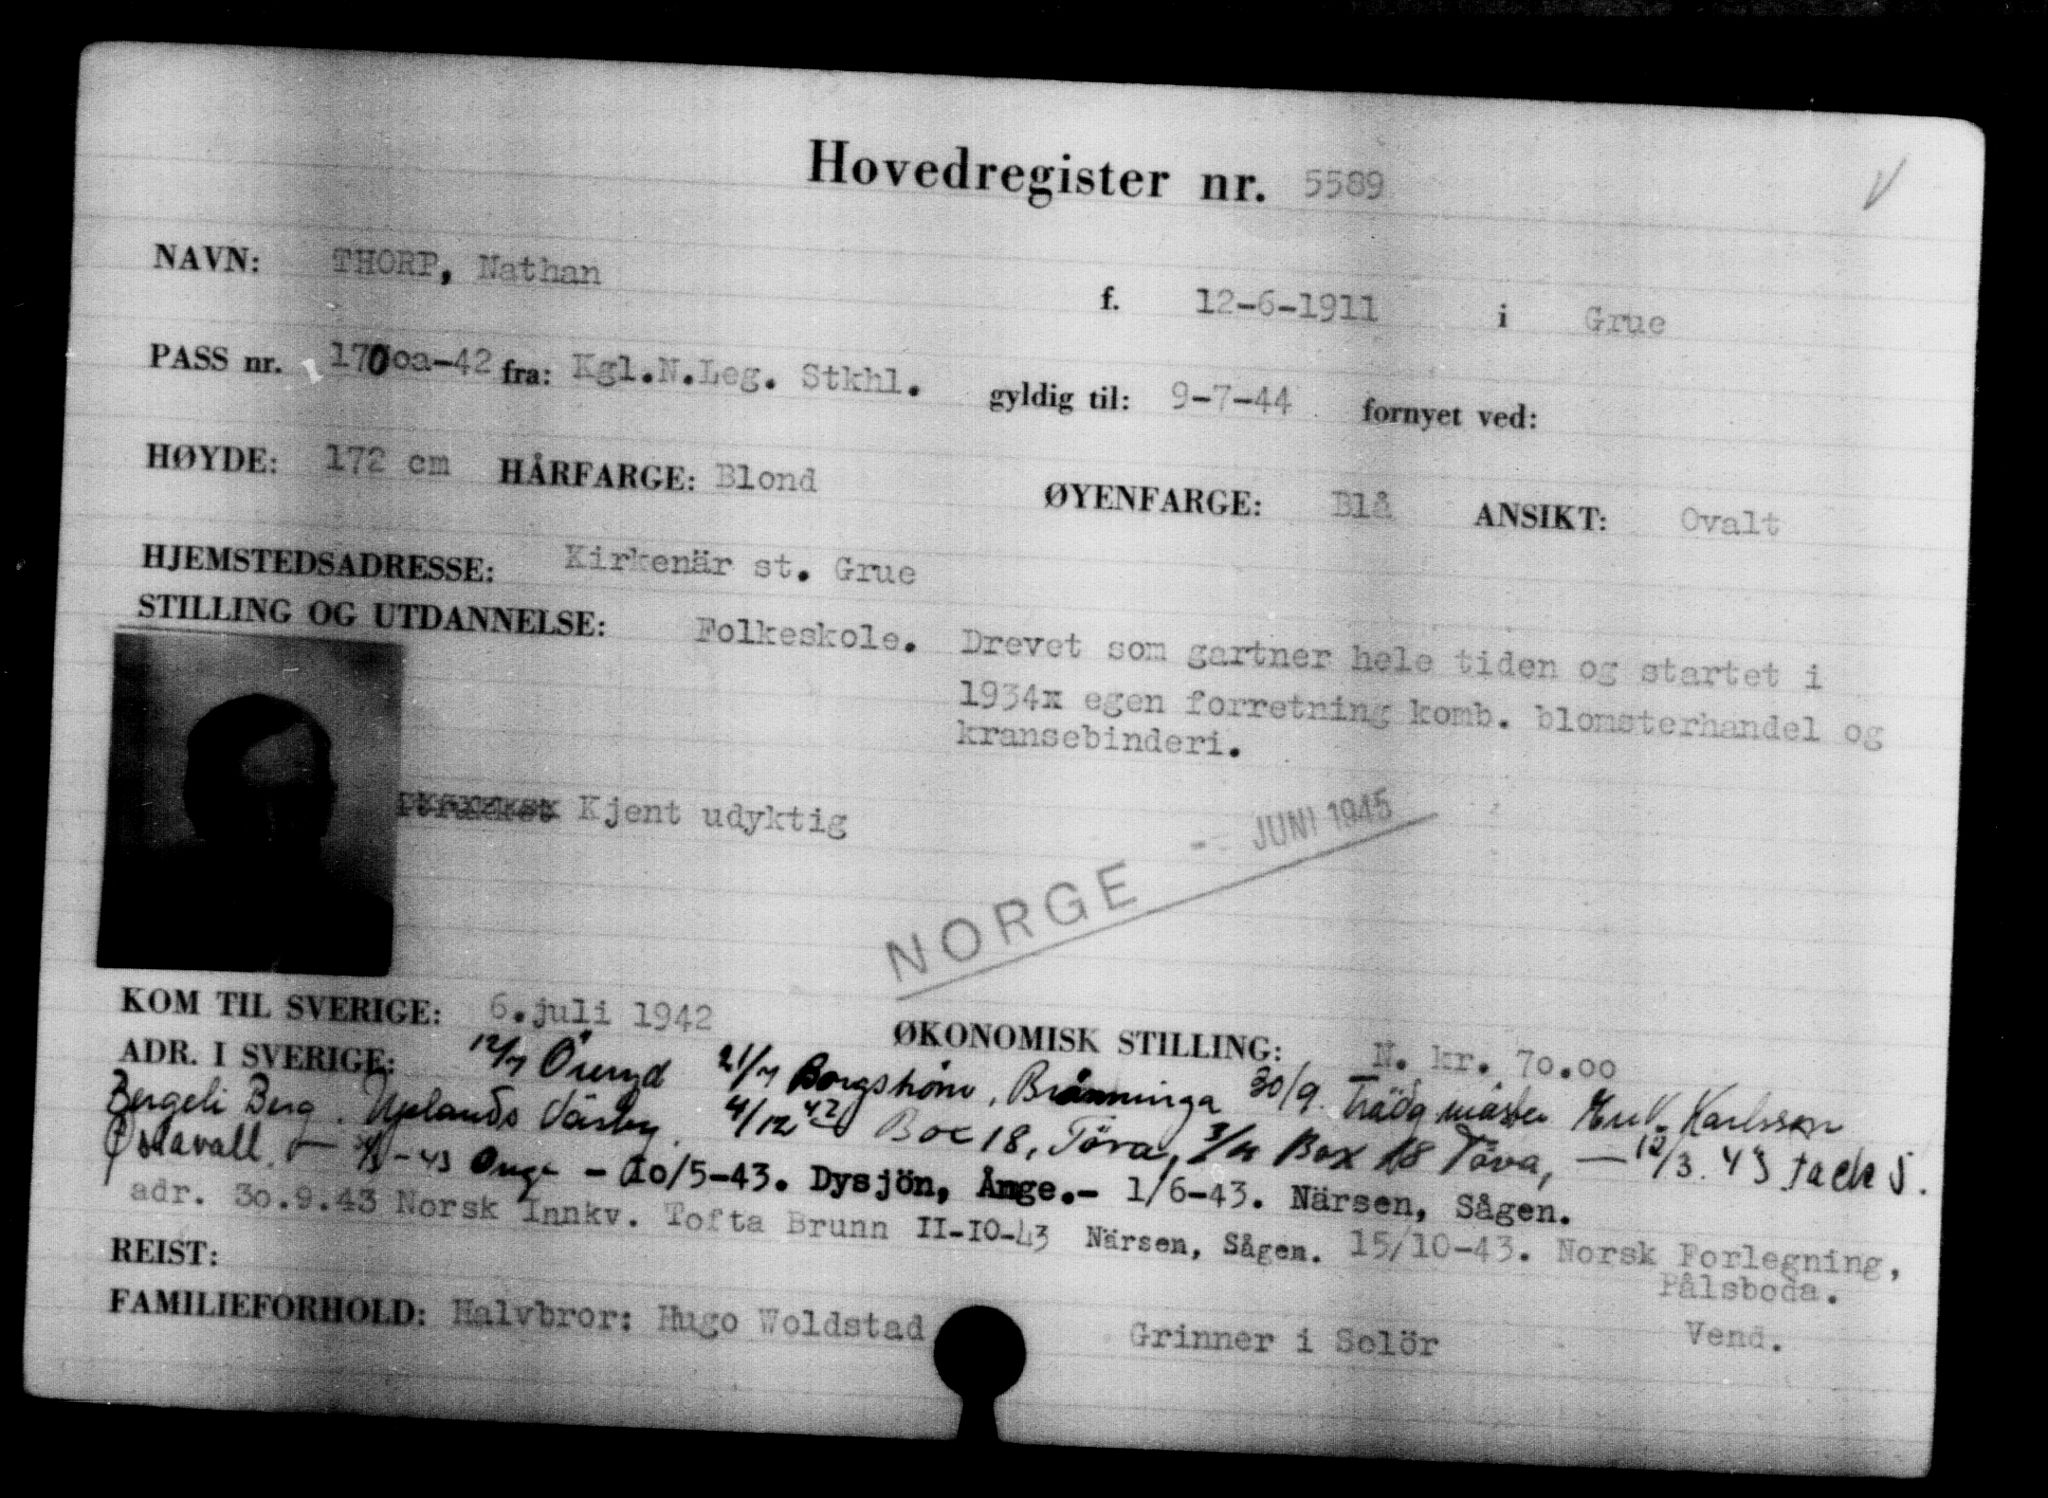 Hovedregister nr. 5589
V
NAVN: THORP, Nathan f. 12-6-1911 i Grue
PASS nr. 1700a-42 fra: Kgl.N.Leg. Stkhl. gyldig til: 9-7-44 fornyet ved:
HØYDE: 172 cm HÅRFARGE: Blond ØYENFARGE: Blå ANSIKT: Ovalt
HJEMSTEDSADRESSE: Kirkenär st. Grue
STILLING OG UTDANNELSE: Folkeskole. Drevet som gartner hele tiden og startet i
1934x egen forretning komb. blomsterhandel og
kransebinderi.
Kjent udyktig
NORGE -- JUNI 1945
KOM TIL SVERIGE: 6.juli 1942 ØKONOMISK STILLING: N. kr. 70.00
ADR. I SVERIGE: 12/7 Öreryd 21/7 Borgström, Bränninga 30/9. Trädg.mäster Karlsson
Bergeli Berg. Uplands Väsby. 4/12 42 Box 18, Töva, Box 18 Töva, — 12/3.43 fack 5.
Östavall. — Ånge - 10/5-43. Dysjön, Ånge.- 1/6-43. Närsen, Sågen.
adr. 30.9.43 Norsk Innkv. Tofta Brunn II-10-43 Närsen, Sågen. 15/10-43. Norsk Forlegning,
Pålsboda.
REIST:
FAMILIEFORHOLD: Halvbror: Hugo Woldstad Grinner i Solör Vend.